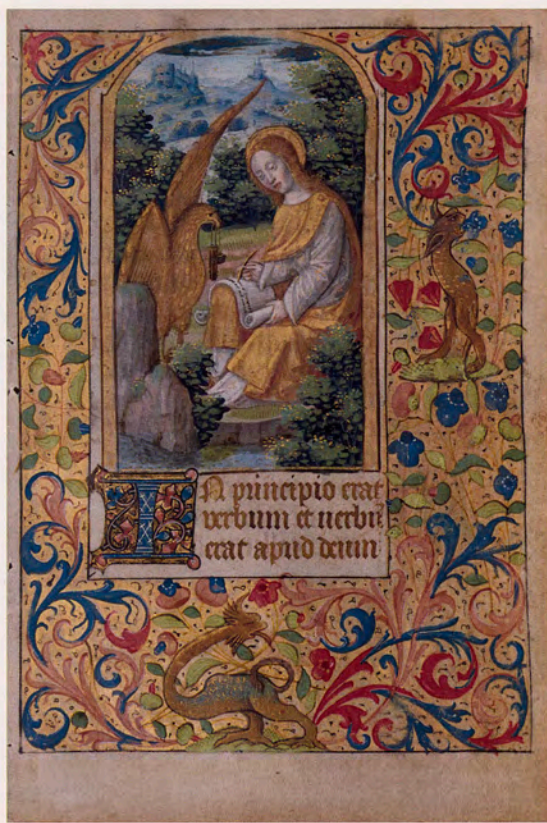 IN principio erat
verbum et uerbū
erat apud deum